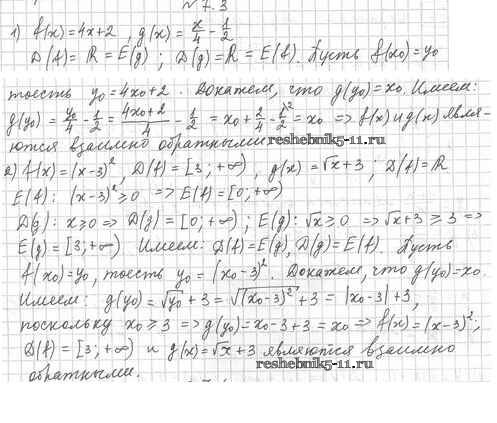 № 7.3
1) f(x)=4x+2 , g(x) = x/4 - 1/2
D(f)=ℝ=E(g) ; D(g)=ℝ=E(f). Пусть f(x₀)=y₀
тоесть y₀=4x₀+2. Докажем, что g(y₀)=x₀. Имеем:
g(y₀) = y₀/4 - 1/2 = (4x₀+2)/4 - 1/2 = x₀ + 2/4 - 1/2 = x₀ => f(x) и g(x) явля-
ются взаимно обратными
reshebnik5-11.ru
2) f(x)=(x-3)², D(f)=[3;+∞), g(x)=√x+3; D(f)=ℝ
E(f): (x-3)²≥0 => E(f)=[0;+∞)
D(g): x≥0 => D(g)=[0;+∞); E(g): √x≥0 => √x+3≥3 =>
E(g)=[3;+∞) Имеем: D(f)=E(g), D(g)=E(f). Пусть
f(x₀)=y₀, тоесть y₀=(x₀-3)². Докажем, что g(y₀)=x₀.
Имеем: g(y₀)=√y₀+3=√((x₀-3)²)+3=|x₀-3|+3,
поскольку x₀≥3 => g(y₀)=x₀-3+3=x₀ => f(x)=(x-3)²;
D(f)=[3;+∞) и g(x)=√x+3 являются взаимно
обратными.
reshebnik5-11.ru